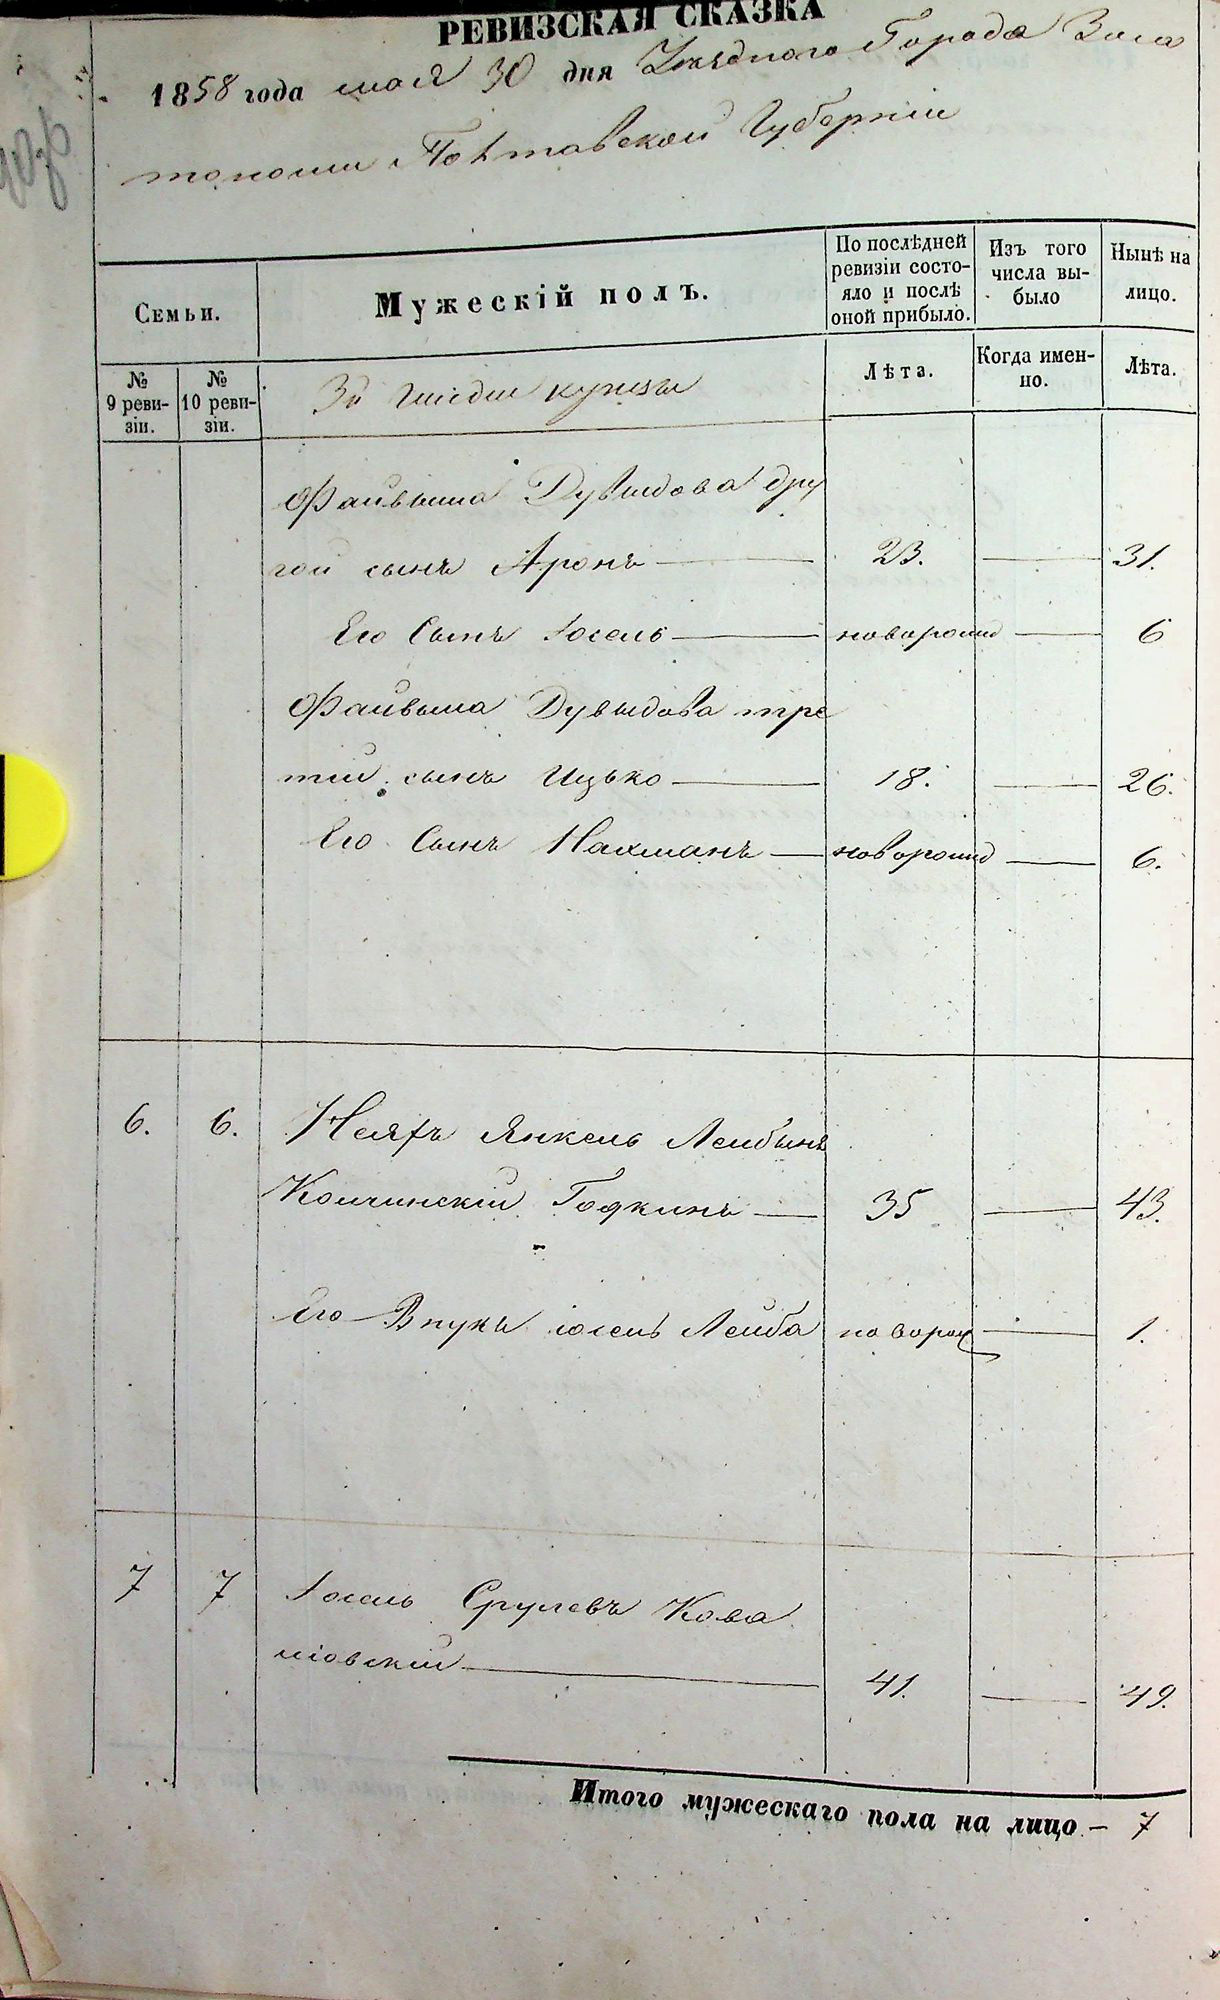 РЕВИЗСКАЯ СКАЗКА
1858 года мая 30 дня Уѣзднаго Города Золо
тоноши Полтавской Губерніи
Семьи.
Мужескій полъ.
По послѣдней ревизіи состояло и послѣ оной прибыло.
Изъ того числа выбыло
Нынѣ на лицо.
№ 9 ревизіи.
№ 10 ревизіи.
3й Гильдіи купцы
Лѣта.
Когда именно.
Лѣта.
Файвыша Дувыдова дру
гой сынъ Аронъ 23. 31.
Его Сынъ Іосель новорожд 6
Файвыша Дувыдова тре
тій сынъ Ицько 18. 26.
Его Сынъ Нахманъ новорожд 6.
6. 6. Янкель Лейбынъ
35 43.
Его Внукъ Іосель Лейба новорож 1.
7 7 Іосель Срулевъ Кова
41. 49.
Итого мужескаго пола на лицо – 7